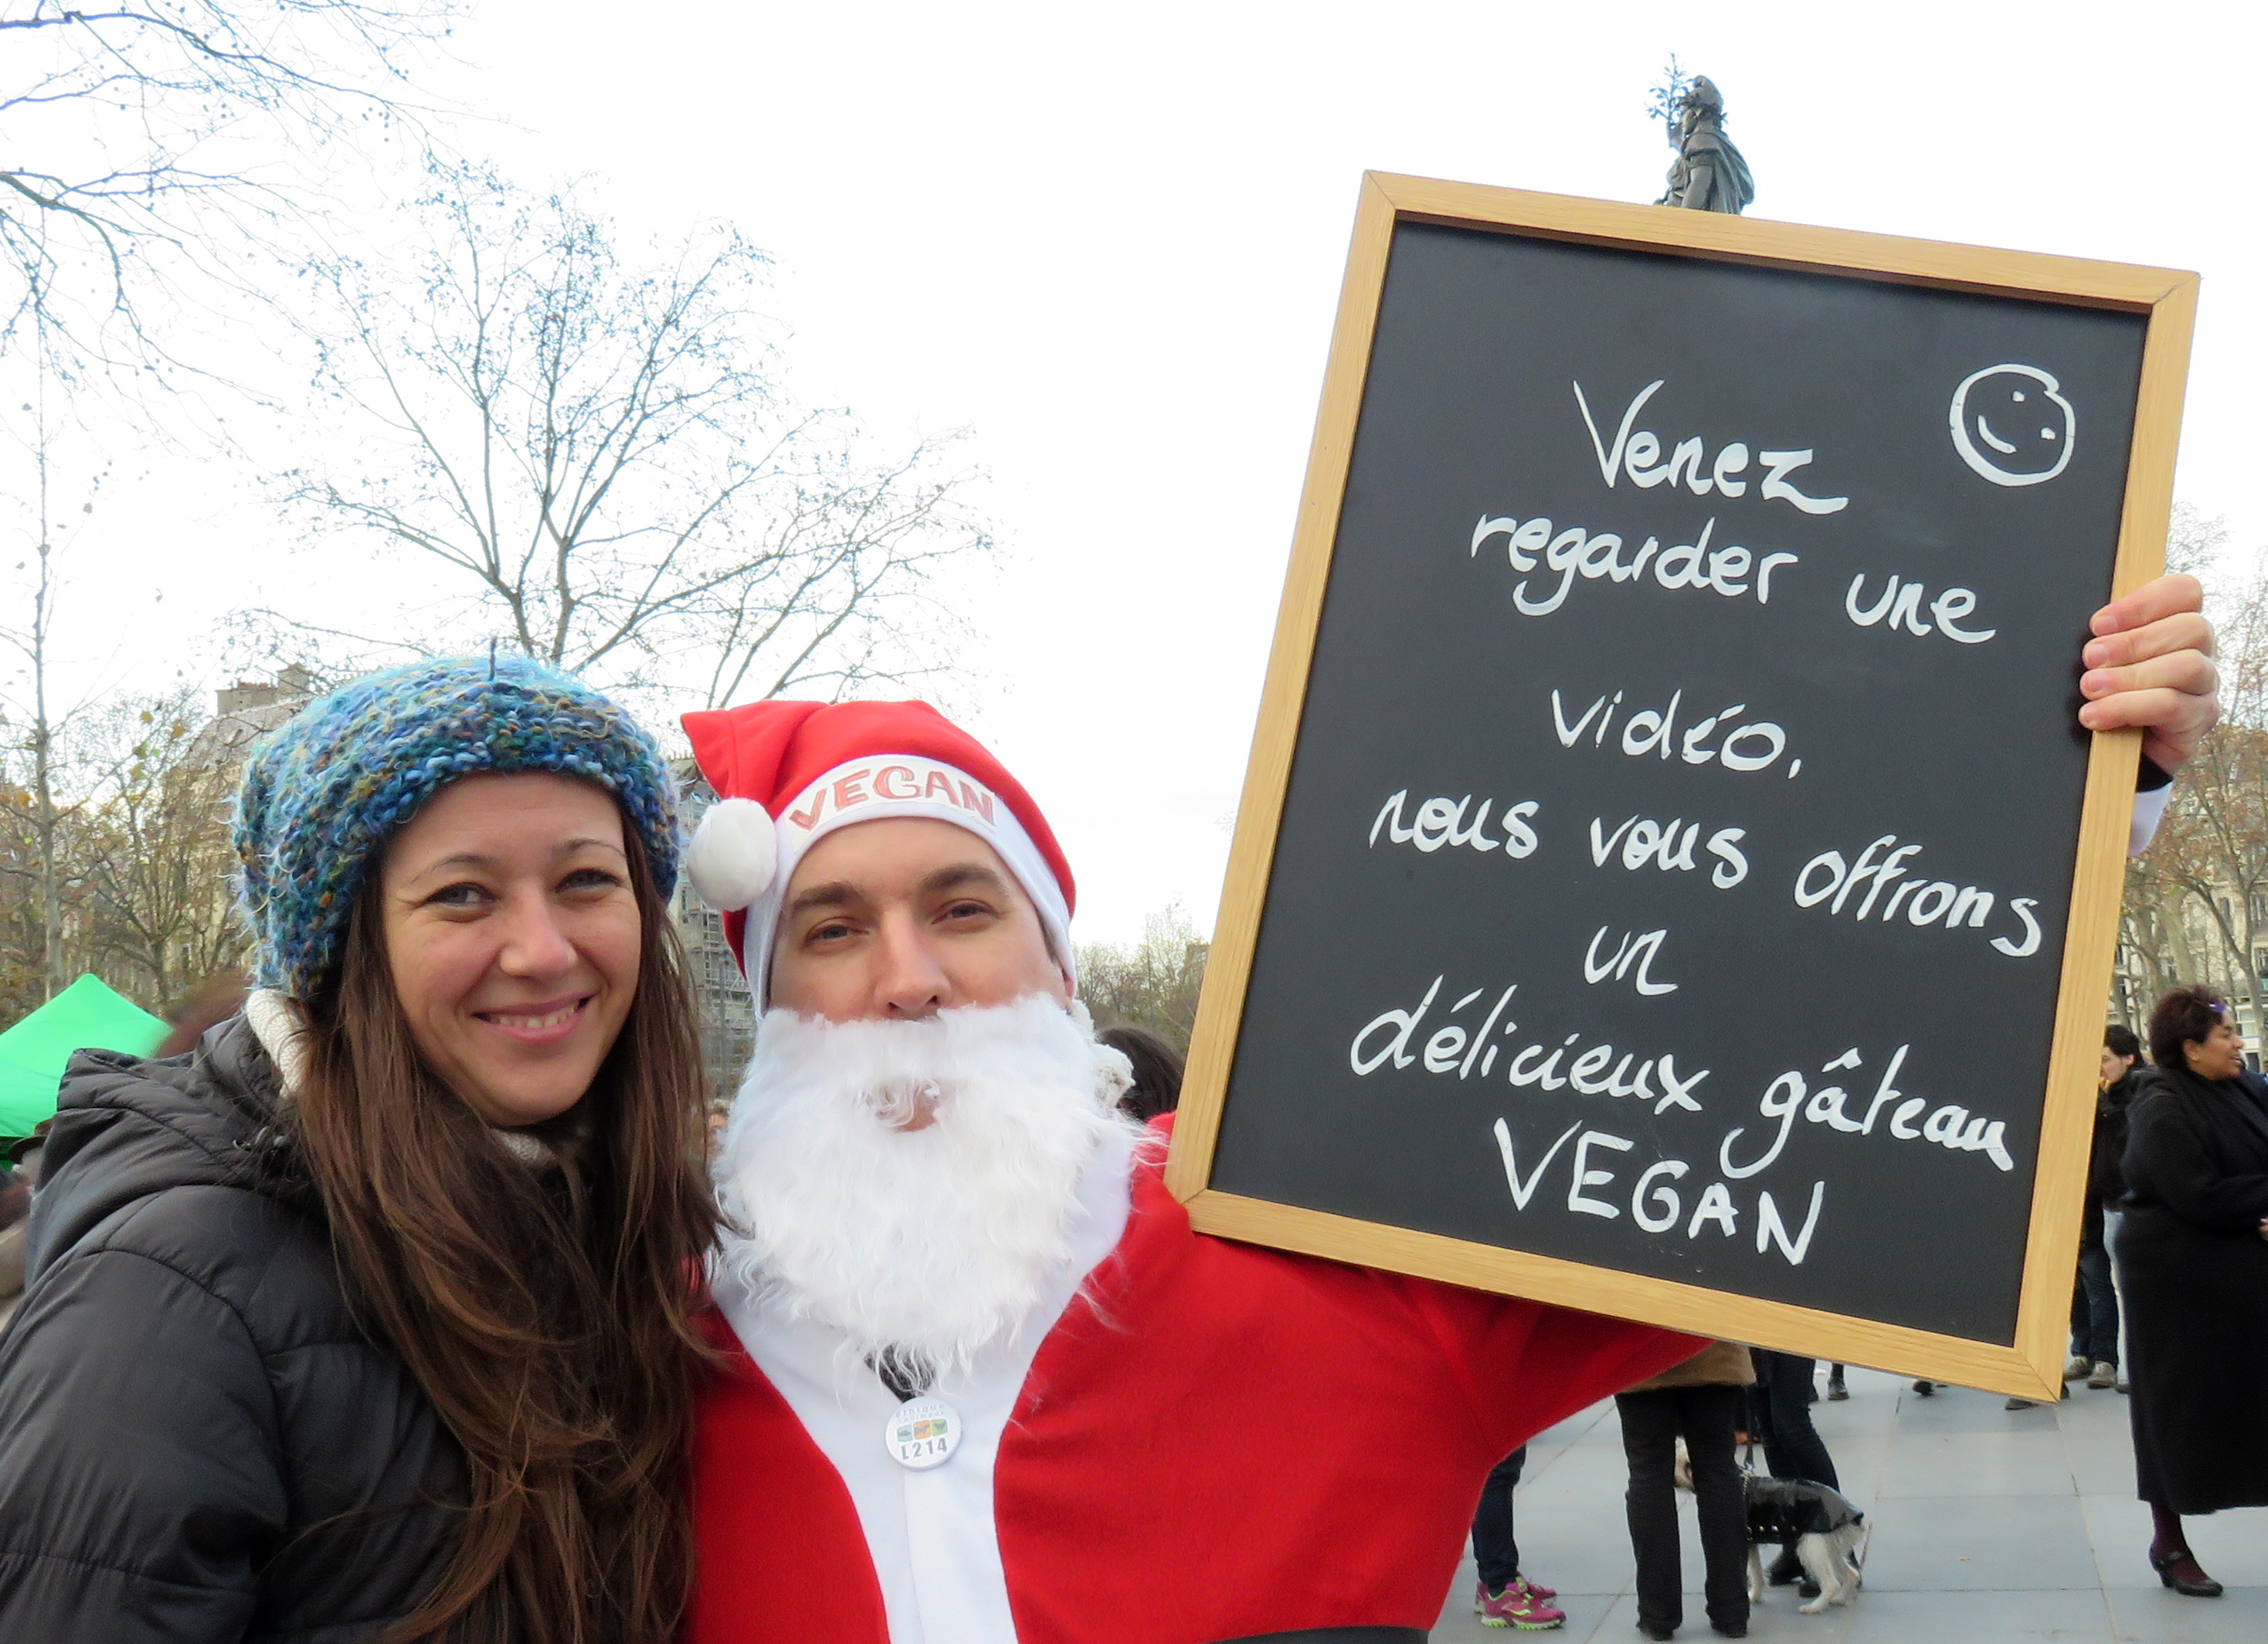 Venez
regarder une
vidéo,
nous vous offrons
un
délicieux gâteau
VEGAN
VEGAN
éthique
& animaux
L214